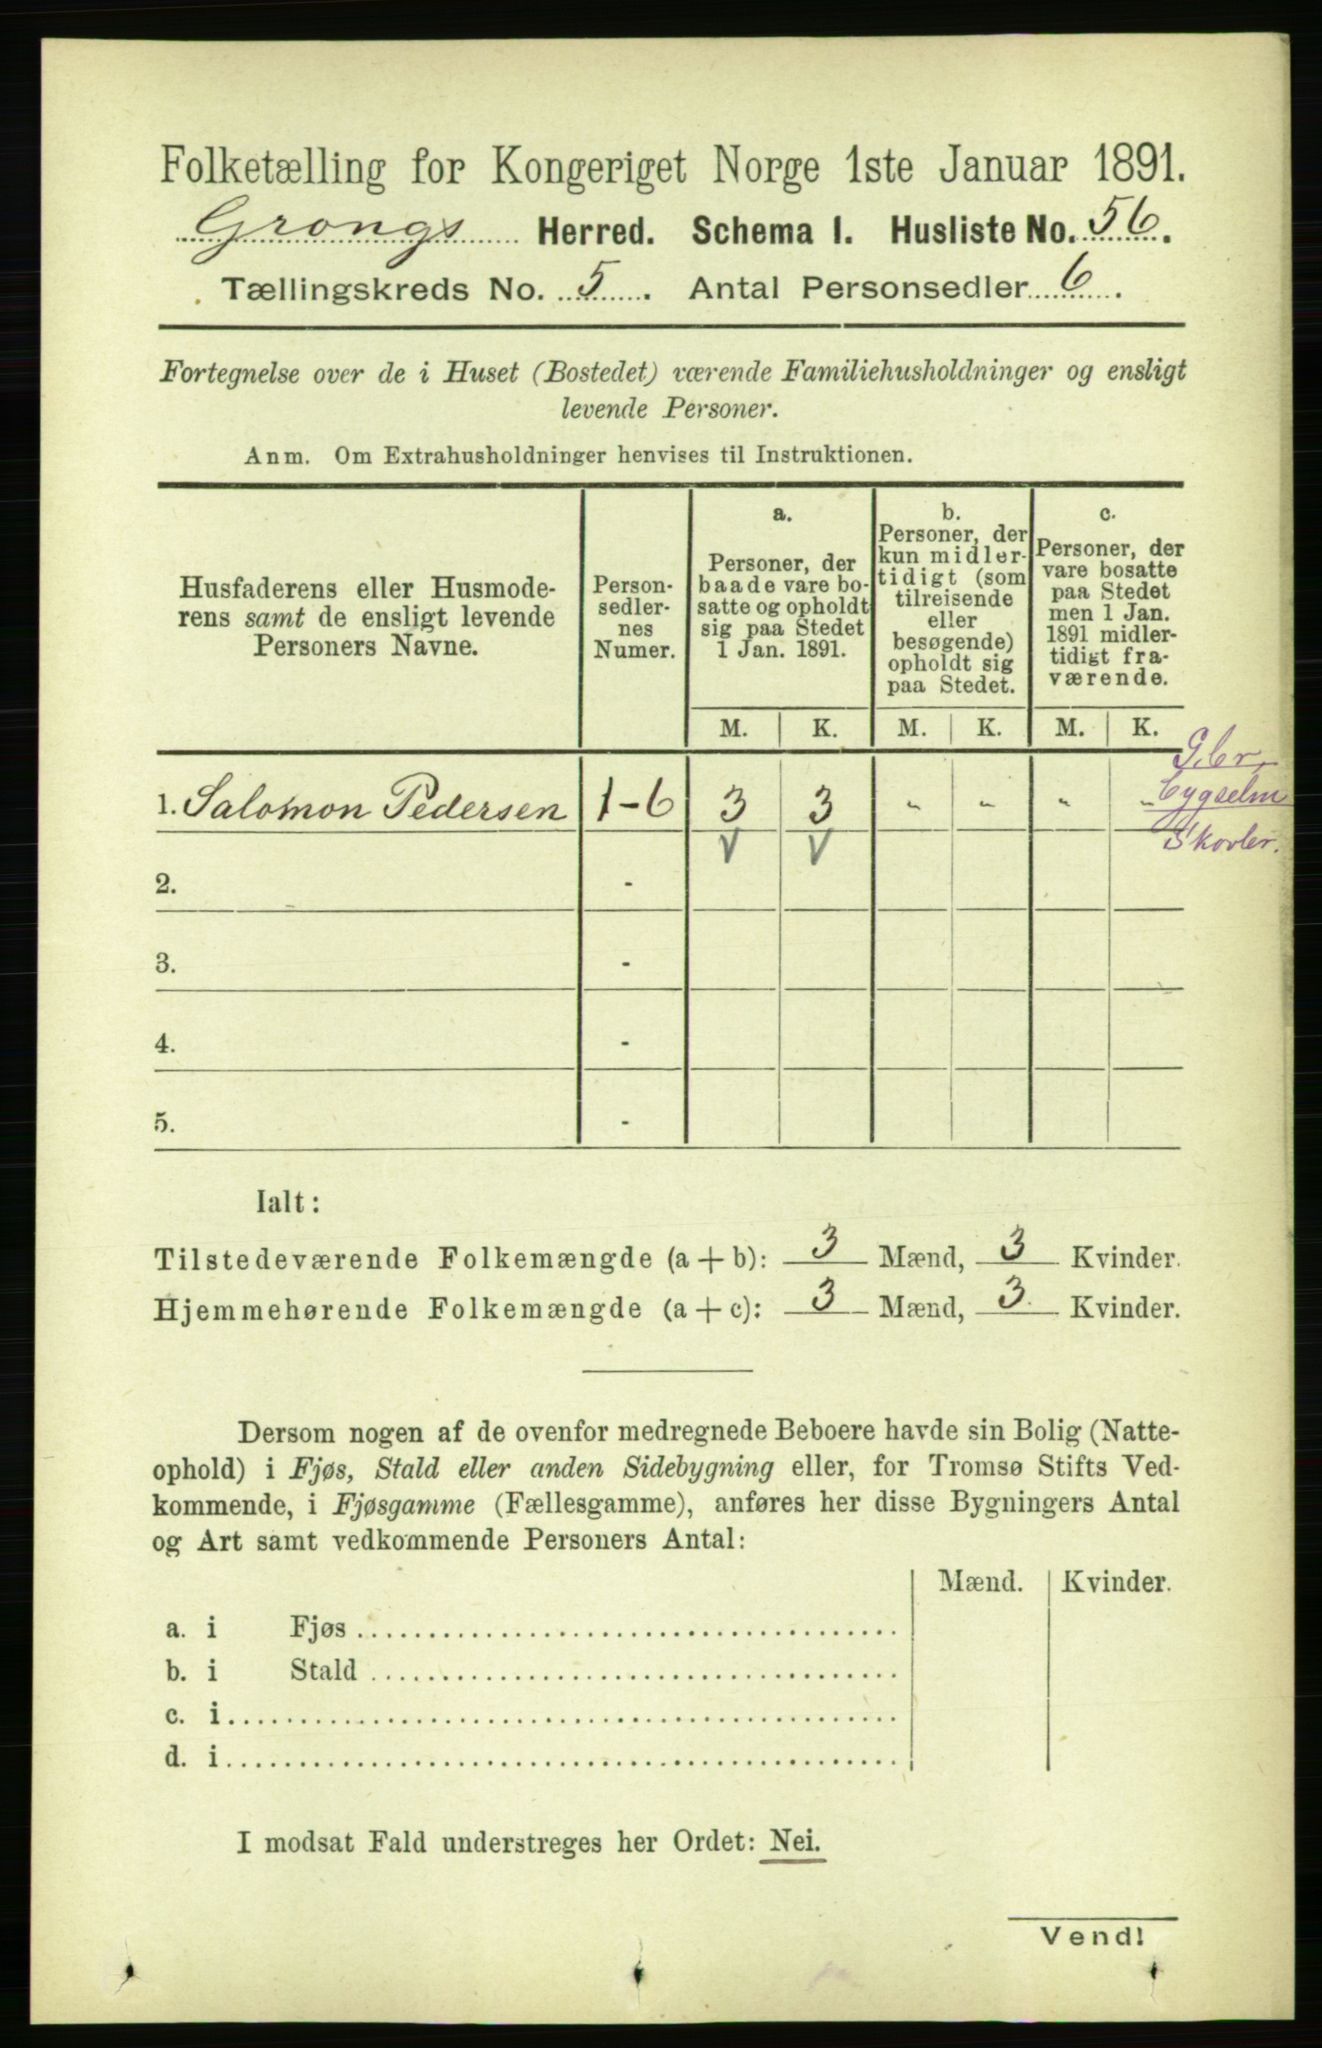 Folketælling for Kongeriget Norge 1ste Januar 1891.
Grongs Herred. Schema 1. Husliste No. 56.
Tællingskreds No. 5. Antal Personsedler 6.
Fortegnelse over de i Huset (Bostedet) værende Familiehusholdninger og ensligt
levende Personer.
Anm. Om Extrahusholdninger henvises til Instruktionen.
Husfaderens eller Husmode-
rens samt de ensligt levende
Personers Navne.
Person-
sedler-
nes
Numer.
a.
Personer, der
baade vare bo-
satte og opholdt
sig paa Stedet
1 Jan. 1891.
b.
Personer, der
kun midler-
tidigt (som
tilreisende
eller
besøgende)
opholdt sig
paa Stedet.
c.
Personer, der
vare bosatte
paa Stedet
men 1 Jan.
1891 midler-
tidigt fra-
værende.
M. K. M. K. M. K.
Gbr.
1. Salomon Pedersen 1-6 3 3 " " " " bygselm
V V Skovbr.
2. -
3. -
4. -
5. -
Ialt:
Tilstedeværende Folkemængde (a + b): 3 Mænd, 3 Kvinder.
Hjemmehørende Folkemængde (a + c): 3 Mænd, 3 Kvinder.
Dersom nogen af de ovenfor medregnede Beboere havde sin Bolig (Natte-
ophold) i Fjøs, Stald eller anden Sidebygning eller, for Tromsø Stifts Ved-
kommende, i Fjøsgamme (Fællesgamme), anføres her disse Bygningers Antal
og Art samt vedkommende Personers Antal:
Mænd. Kvinder.
a. i Fjøs
b. i Stald
c. i
d. i
I modsat Fald understreges her Ordet: Nei.
Vend!